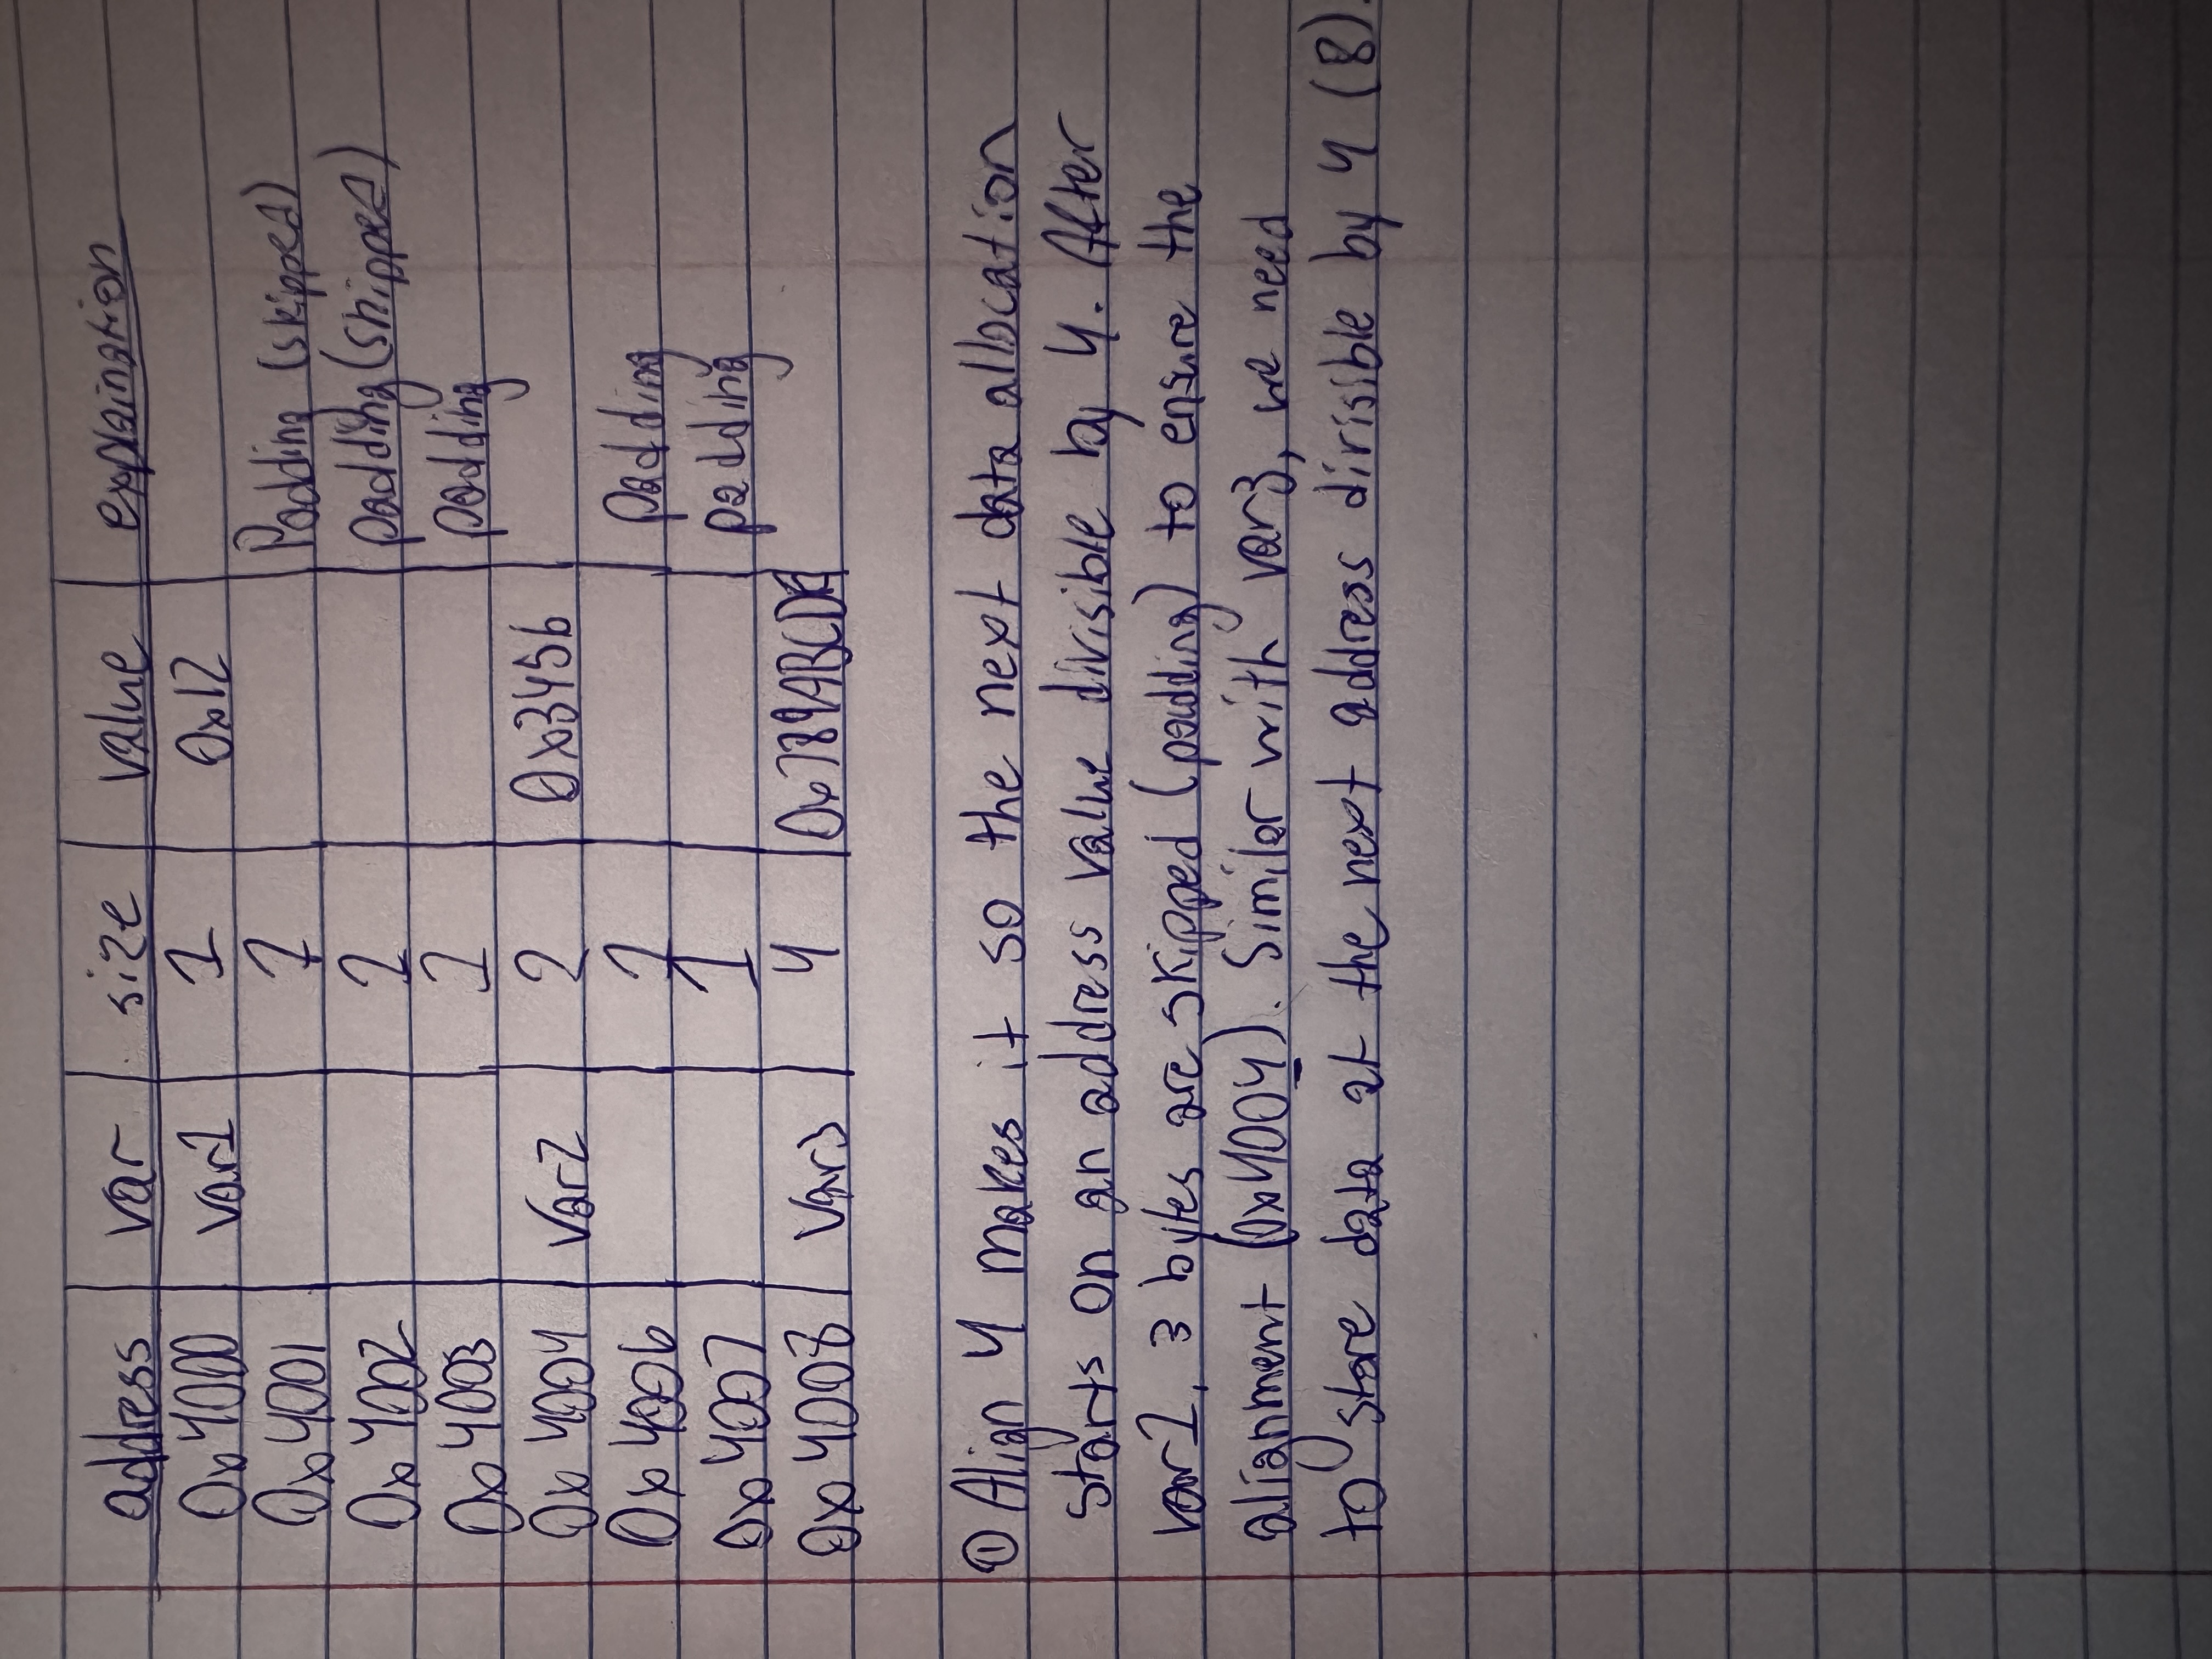 address var size value explaination
0x4000 var1 1 0x12
0x4001 1 Padding (skipped)
0x4002 1 padding (skipped)
0x4003 1 padding
0x4004 var2 2 0x3456
0x4006 1 padding
0x4007 1 padding
0x4008 var3 4 0x789ABCDE
① Align 4 makes it so the next data allocation
starts on an address value divisible by 4. After
var1, 3 bytes are skipped (padding) to ensure the
alignment (0x4004). Similar with var3, we need
to store data at the next address divisible by 4 (8).